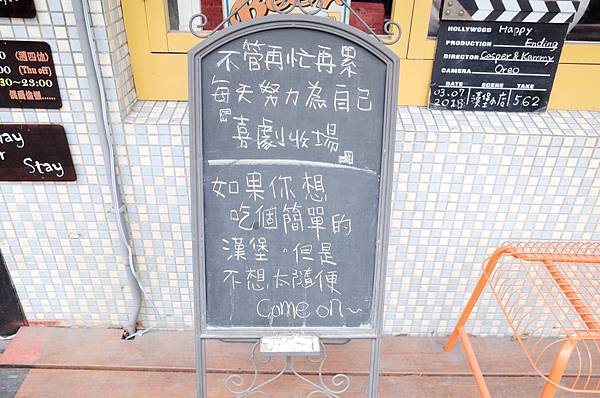 不管再忙再累
每天努力為自己
『喜劇收場』
如果你想
吃個簡單的
漢堡。但是
不想太隨便
Come on~
HOLLYWOOD Happy
PRODUCTION Ending
DIRECTOR Casper & Kammy
CAMERA Oreo
DATE SCENE TAKE
03.07 2018 漢堡小店 562
(週四休)
(Thu off)
~23:00
Stay